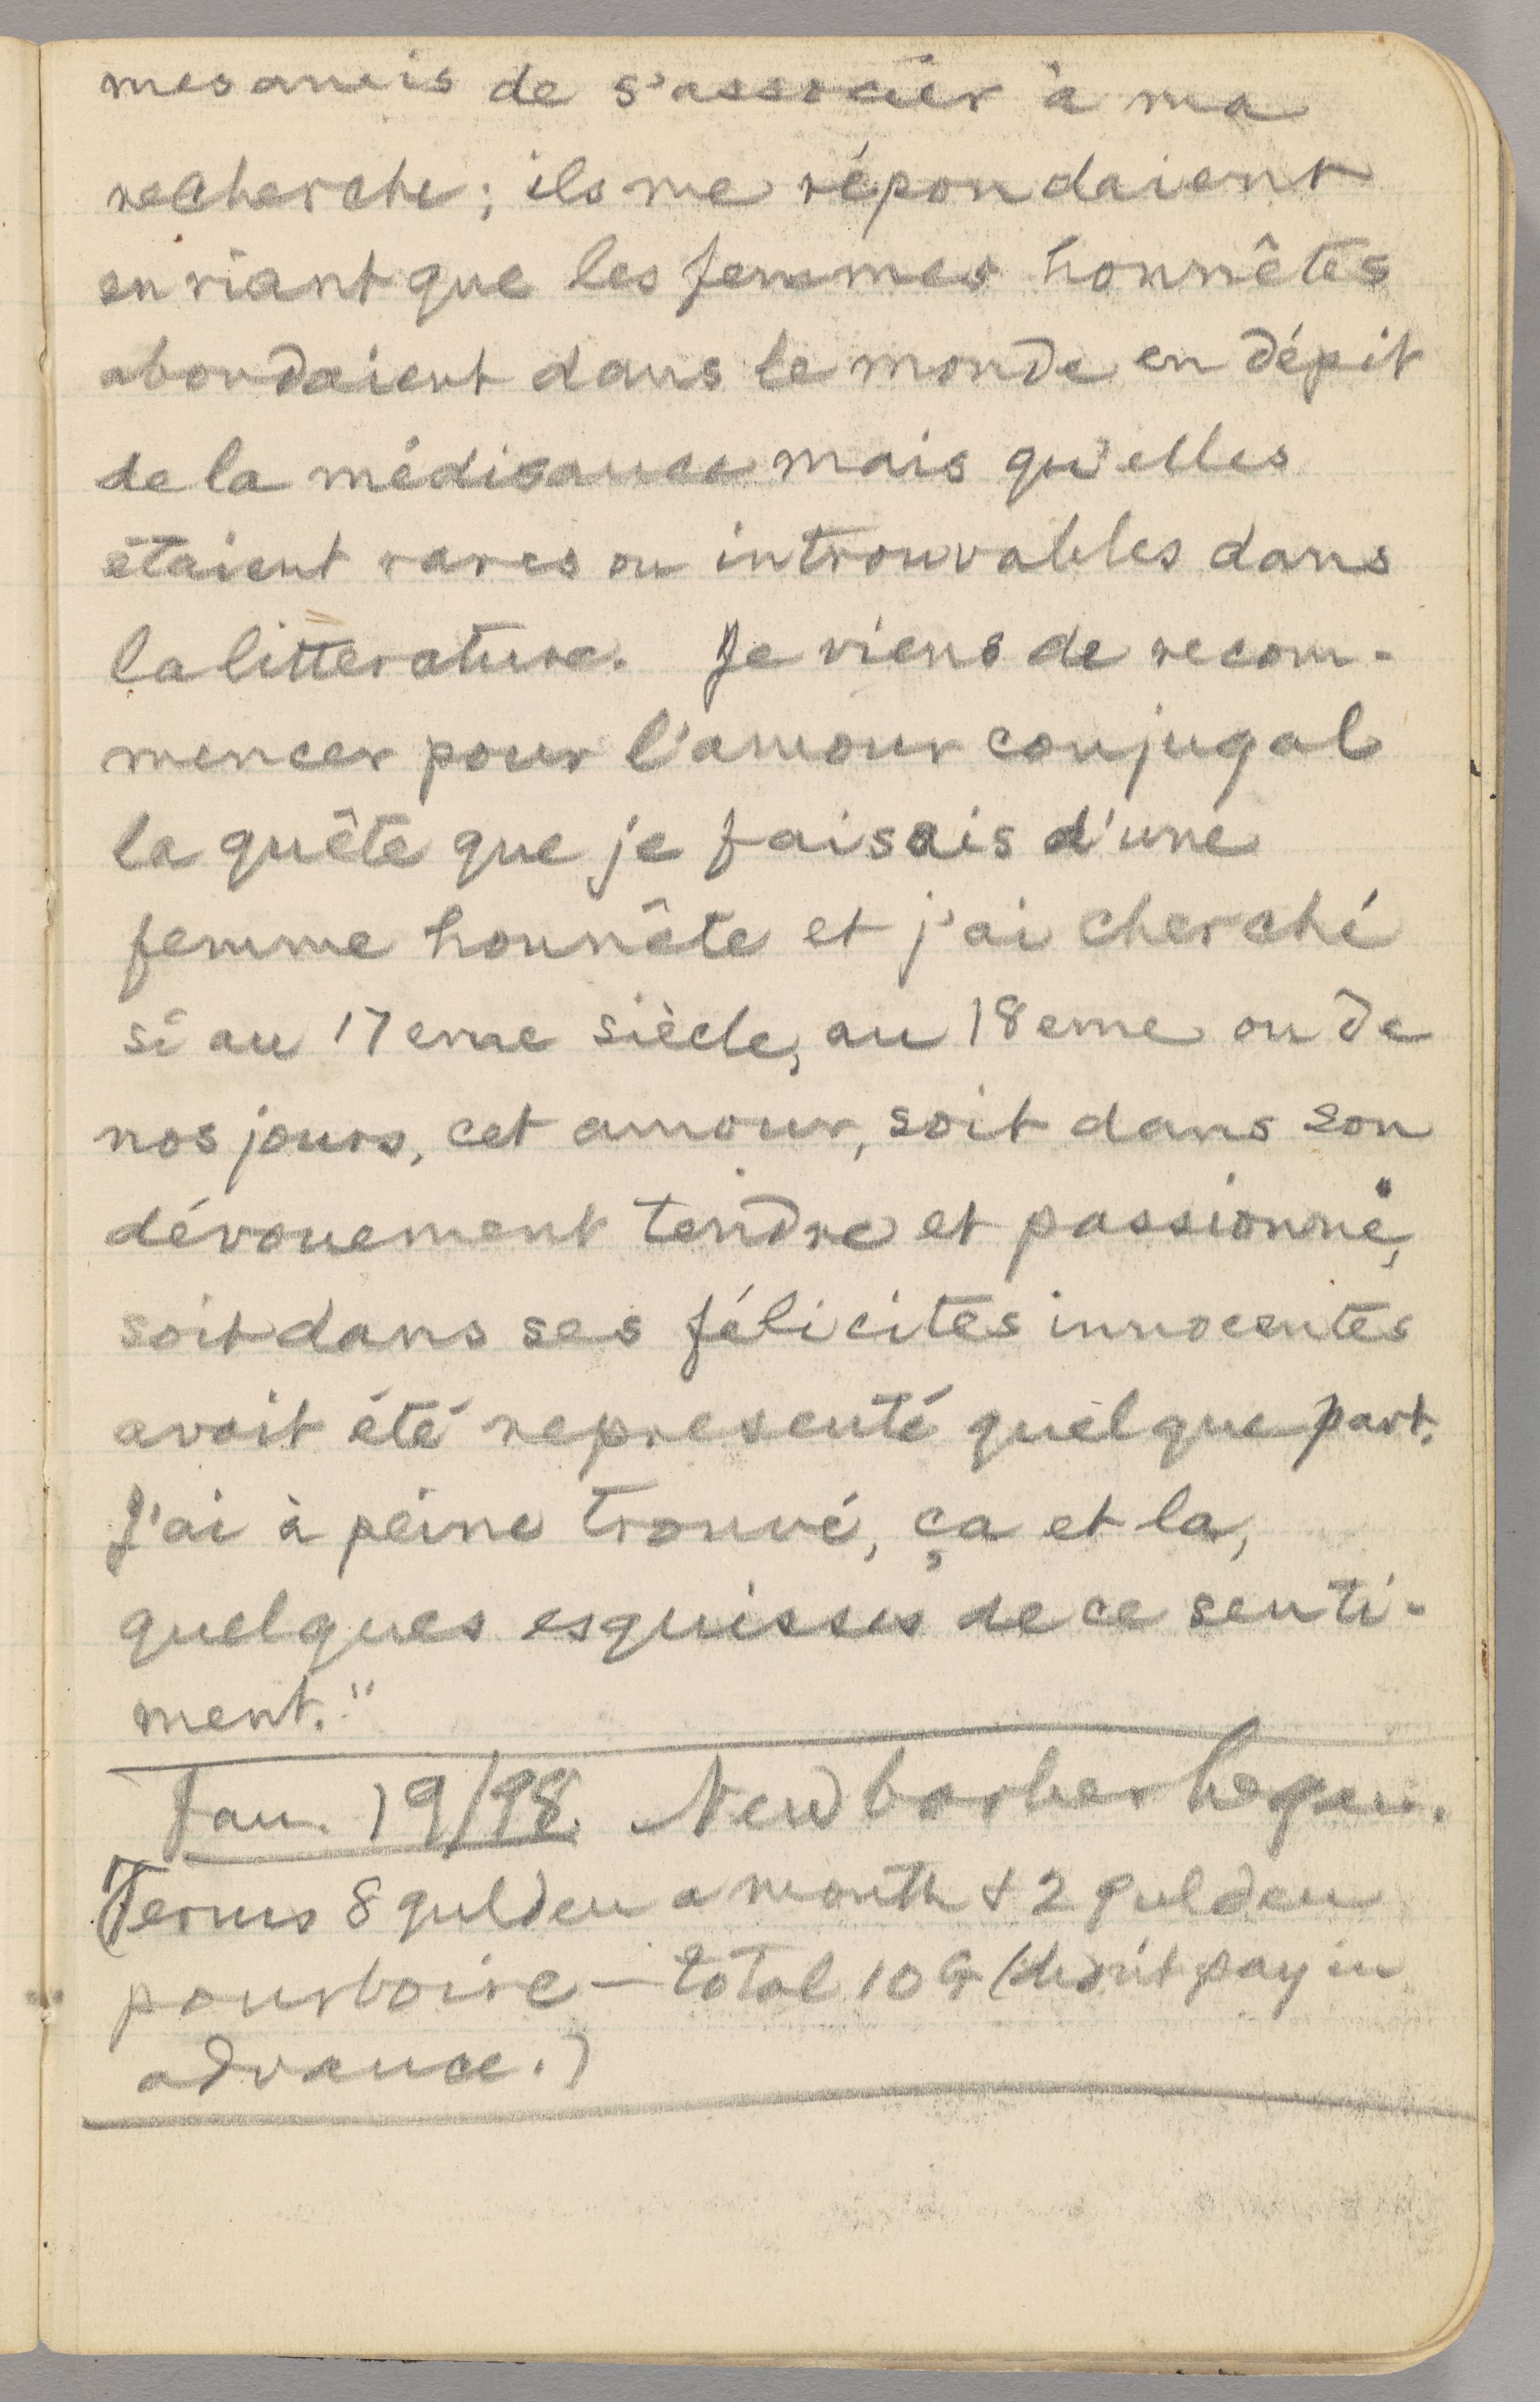 mes amis de s'associer à ma
recherche; ils me répondaient
en riant que les femmes honnêtes
abondaient dans le monde en dépit
de la médisance mais qu'elles
étaient rares ou introuvables dans
la litterature. Je viens de recom-
mencer pour l'amour conjugal
la quête que je faisais d'une
femme honnête et j'ai cherché
si au 17eme siècle, au 18eme ou de
nos jours, cet amour, soit dans son
dévouement tendre et passionné,
soit dans ses félicités innocentes
avait été representé quelque part.
J'ai à peine trouvé, ça et la,
quelques esquisses de ce senti-
ment."
Jan. 19/98. New barber began.
(Terms 8 gulden a month & 2 gulden
pourboire — total 10 G (don't pay in
advance.)